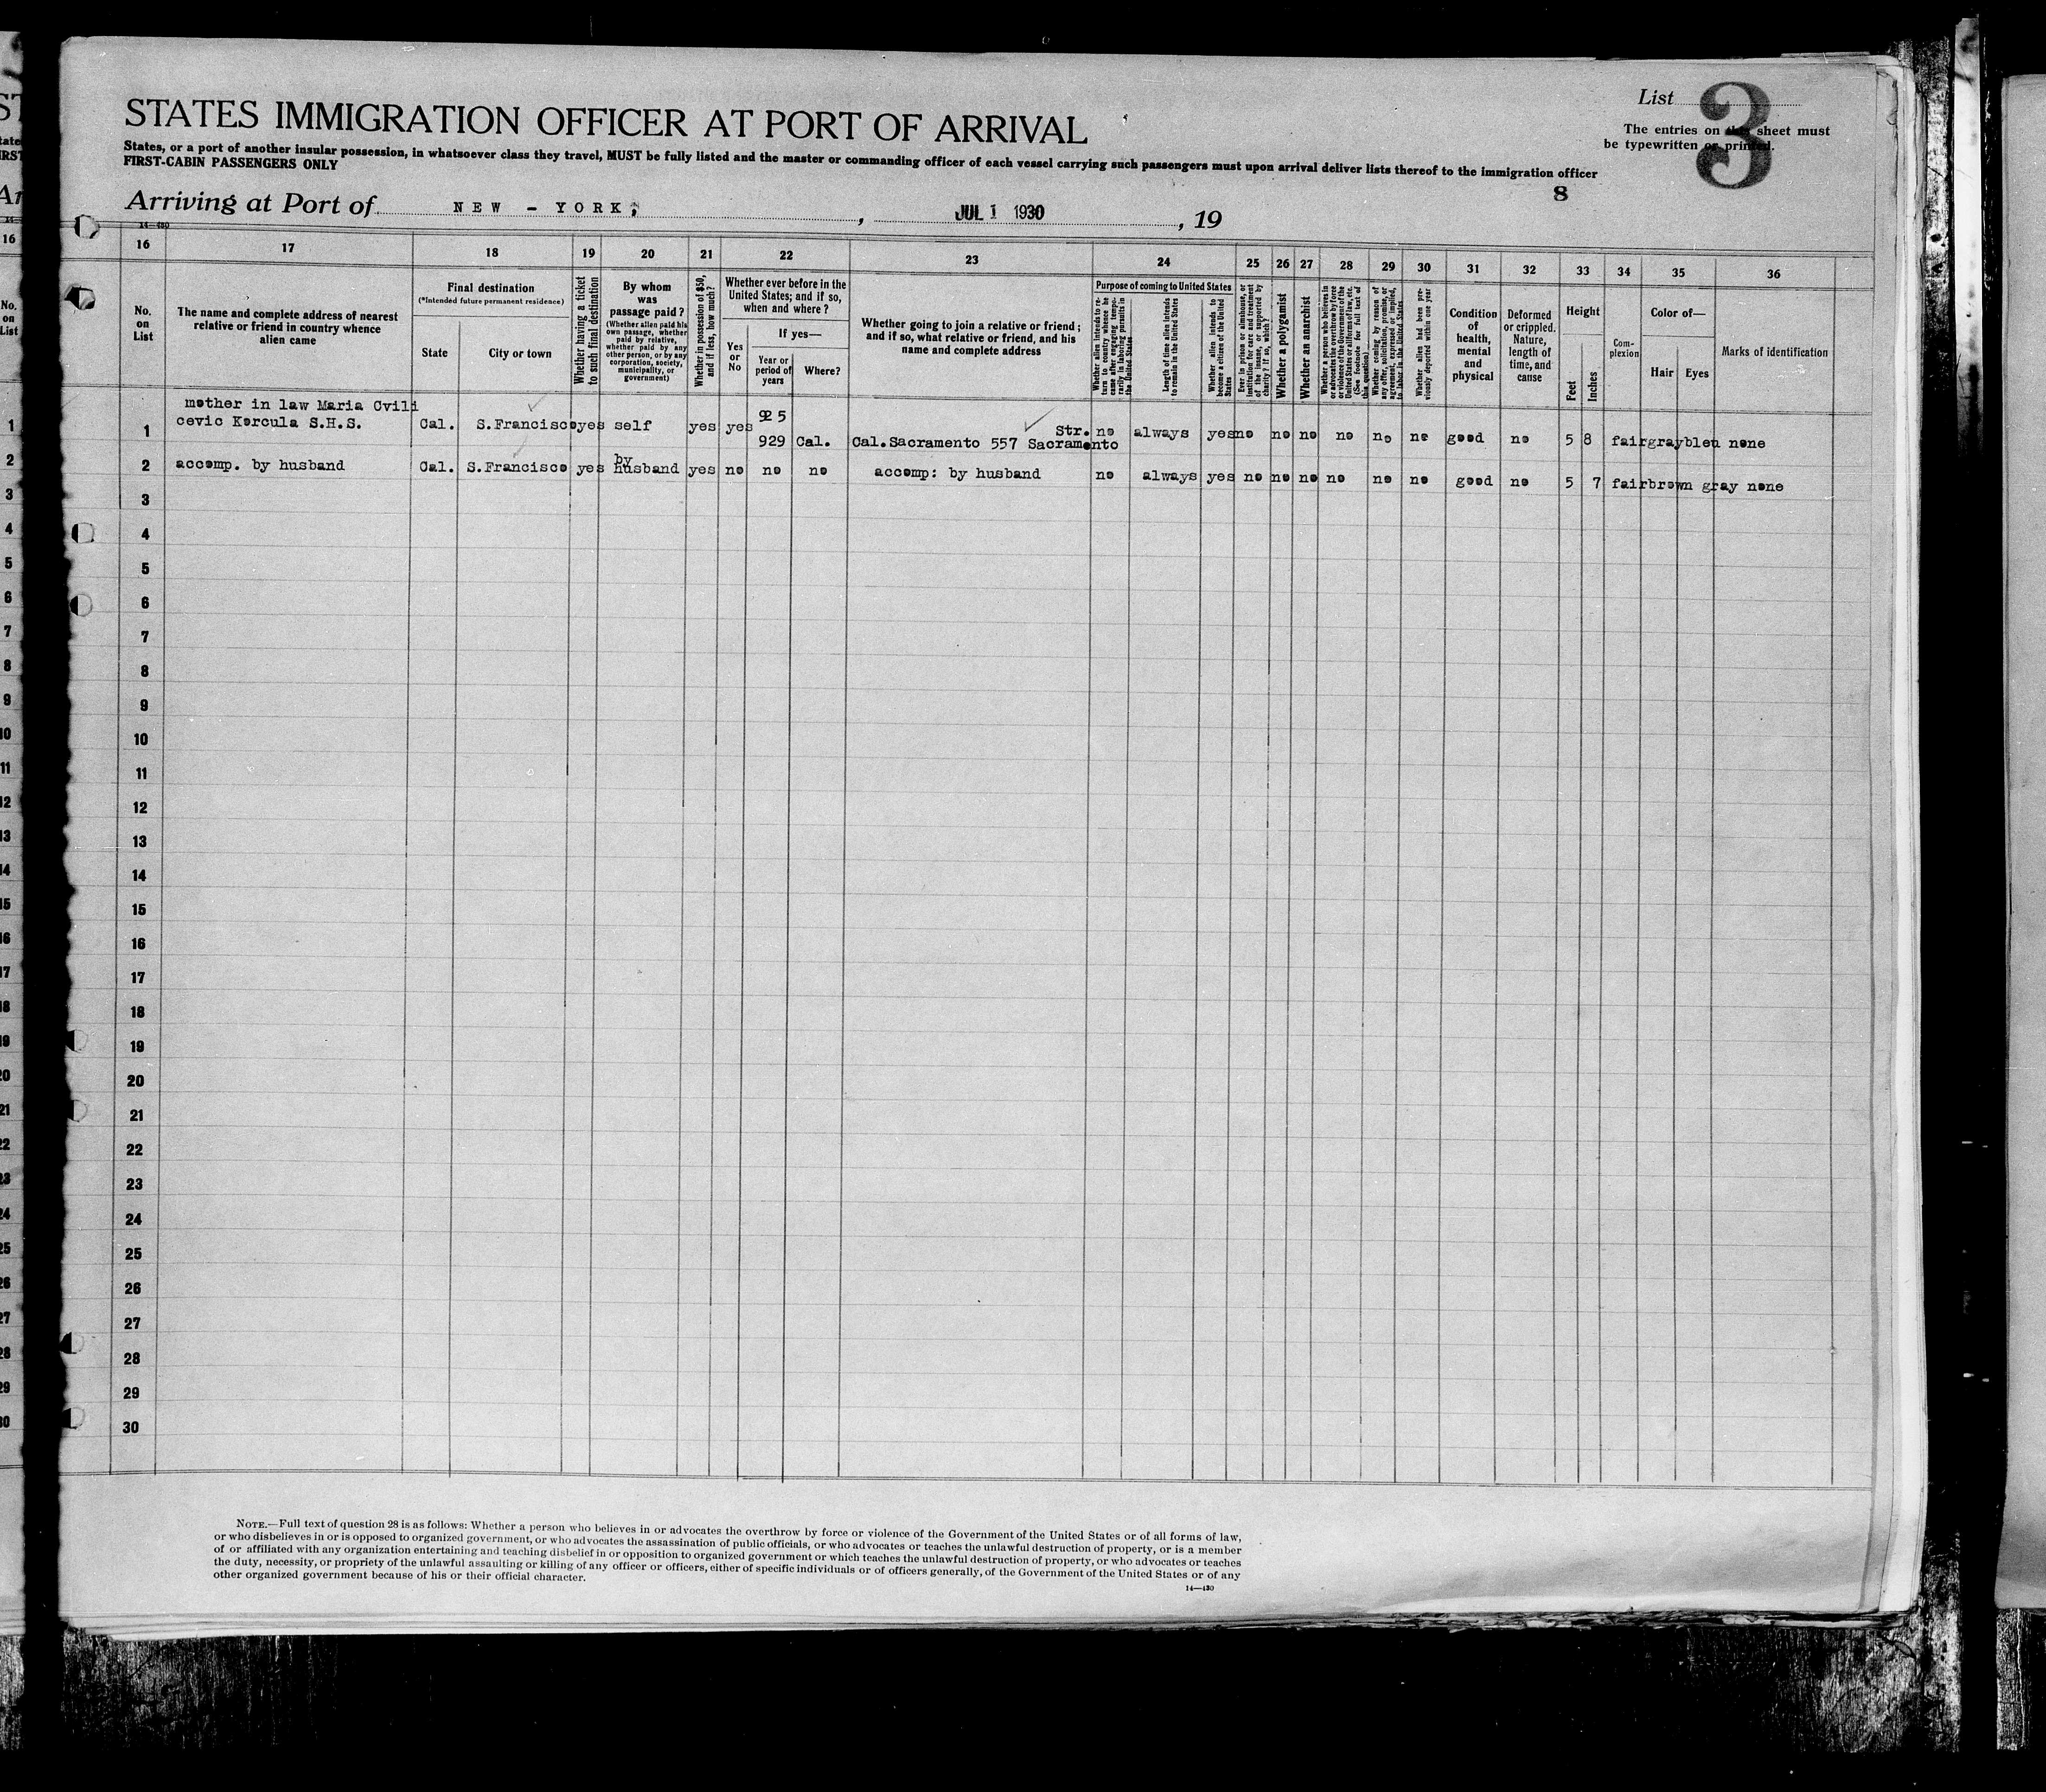 STATES IMMIGRATION OFFICER AT PORT OF ARRIVAL
List 3
The entries on this sheet must
be typewritten or printed.
States, or a port of another insular possession, in whatsoever class they travel, MUST be fully listed and the master or commanding officer of each vessel carrying such passengers must upon arrival deliver lists thereof to the immigration officer
FIRST-CABIN PASSENGERS ONLY
8
Arriving at Port of NEW - YORK; , JUL 1 1930 , 19
14—430
16 17 18 19 20 21 22 23 24 25 26 27 28 29 30 31 32 33 34 35 36
No. on List
The name and complete address of nearest relative or friend in country whence alien came
Final destination
(*Intended future permanent residence)
State
City or town
Whether having a ticket to such final destination
By whom was passage paid?
(Whether alien paid his own passage, whether paid by relative, whether paid by any other person, or by any corporation, society, municipality, or government)
Whether in possession of $50, and if less, how much?
Whether ever before in the United States; and if so, when and where?
Yes or No
If yes—
Year or period of years
Where?
Whether going to join a relative or friend; and if so, what relative or friend, and his name and complete address
Purpose of coming to United States
Whether alien intends to return to country whence he came after engaging temporarily in laboring pursuits in the United States
Length of time alien intends to remain in the United States
Whether alien intends to become a citizen of the United States
Ever in prison or almshouse, or institution for care and treatment of the insane, or supported by charity? If so, which?
Whether a polygamist
Whether an anarchist
Whether a person who believes in or advocates the overthrow by force or violence of the Government of the United States or all forms of law, etc. (See footnote for full text of this question)
Whether coming by reason of any offer, solicitation, promise, or agreement, expressed or implied, to labor in the United States
Whether alien had been previously deported within one year
Condition of health, mental and physical
Deformed or crippled. Nature, length of time, and cause
Height
Feet
Inches
Complexion
Color of—
Hair
Eyes
Marks of identification
mother in law Maria Cvili
1 cevic Korcula S.H.S. Cal. S.Francisco yes self yes yes 925
929 Cal. Cal.Sacramento 557 Sacramento Str. no always yes no no no no no no good no 5 8 fair gray bleu none
2 accomp. by husband Cal. S.Francisco yes by husband yes no no no accomp: by husband no always yes no no no no no no good no 5 7 fair brown gray none
3
4
5
6
7
8
9
10
11
12
13
14
15
16
17
18
19
20
21
22
23
24
25
26
27
28
29
30
NOTE.—Full text of question 28 is as follows: Whether a person who believes in or advocates the overthrow by force or violence of the Government of the United States or of all forms of law,
or who disbelieves in or is opposed to organized government, or who advocates the assassination of public officials, or who advocates or teaches the unlawful destruction of property, or is a member
of or affiliated with any organization entertaining and teaching disbelief in or opposition to organized government or which teaches the unlawful destruction of property, or who advocates or teaches
the duty, necessity, or propriety of the unlawful assaulting or killing of any officer or officers, either of specific individuals or of officers generally, of the Government of the United States or of any
other organized government because of his or their official character.
14—430